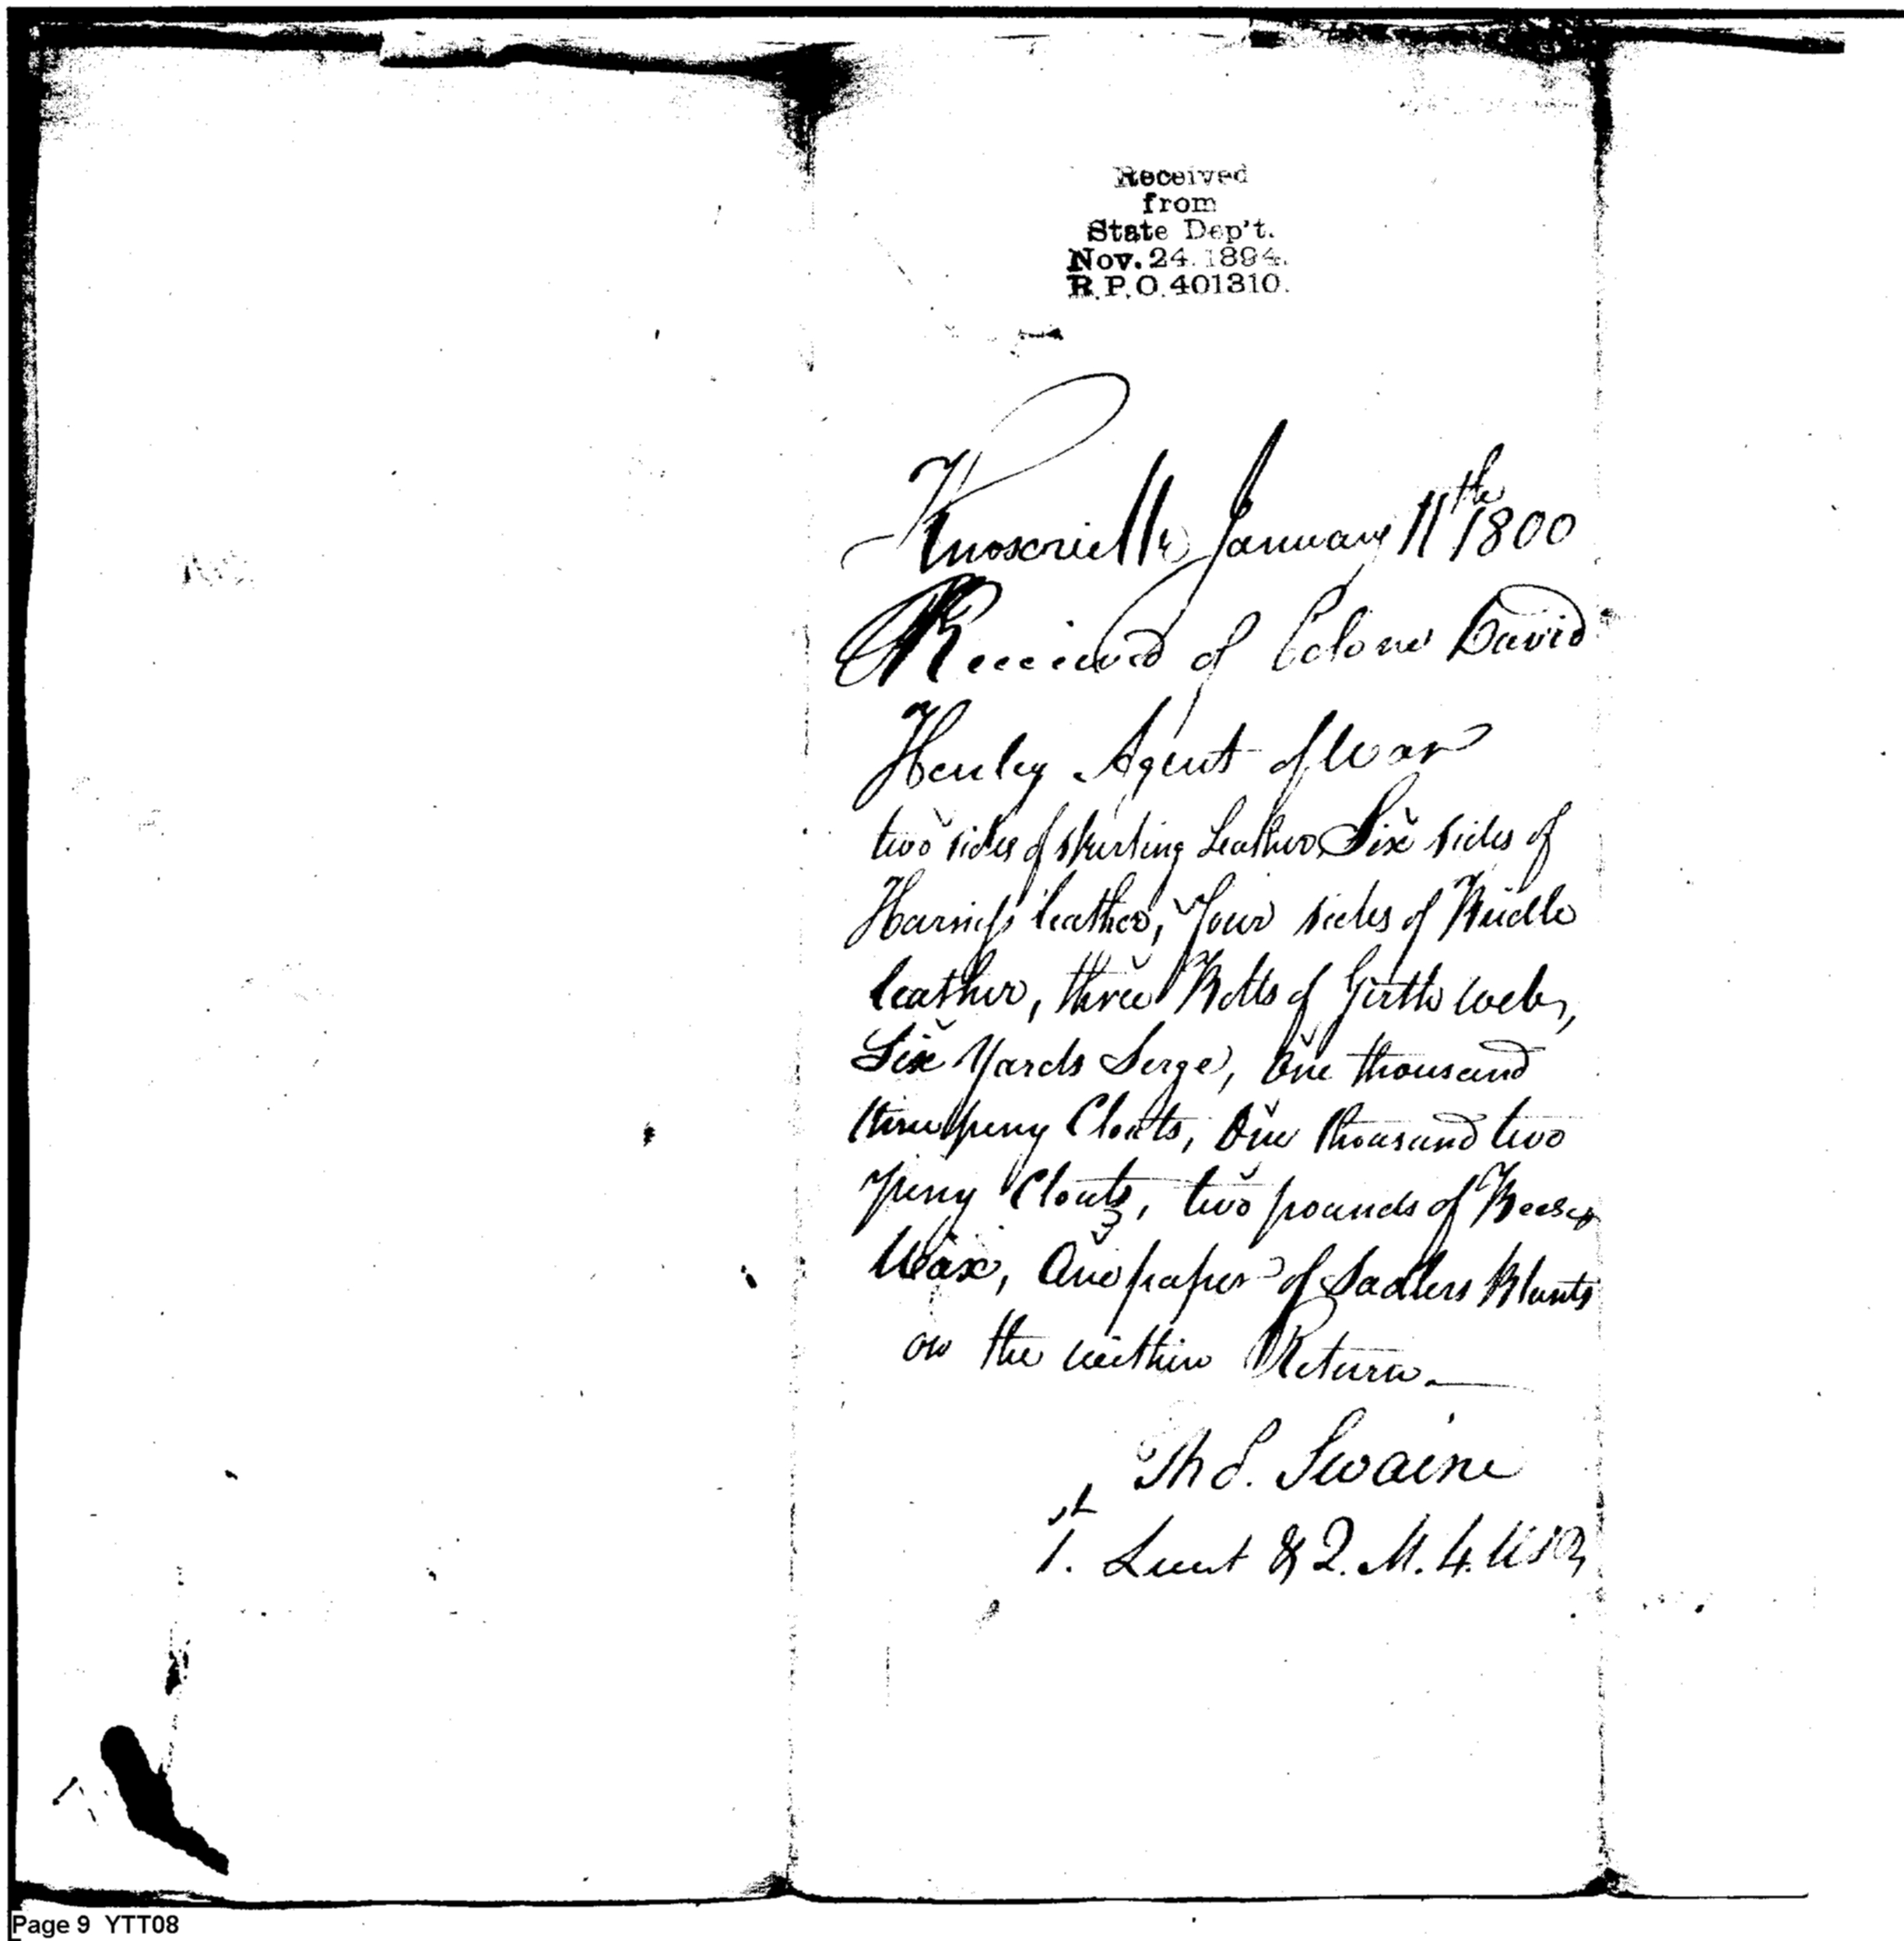 Received
from
State Dep't.
Nov. 24. 1894.
R.P.O. 401310.
Knoxville January 11th 1800
Received of Colone David
Henley Agent of War
two sides of skirting Leather, Six sides of
Harness leather, four sides of Bridle
leather, three Bolts of Girth web,
Six Yards Serge, One thousand
three peny Clouts, One thousand two
peny Clouts, two pounds of Bees
Wax, One paper of Sadlers Blunts
on the within Return.
Th S. Swaine
1st. Lieut & Q. M. 4.
Page 9 YTT08